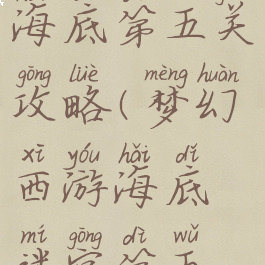 海底第五关
gōng lüè mèng huàn
攻略(梦幻
xī yóu hǎi dǐ
西游海底
mí gōng dì wǔ
迷宫第五